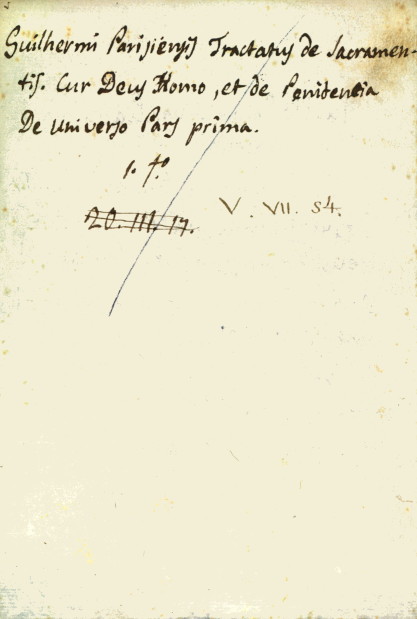 Guilhermi Parisiensis Tractatus de Sacramen-
tis. Cur Deus Homo, et de Penitencia
De Universo Pars prima.
1. tº
20. III. 17.
V. VII. 54.